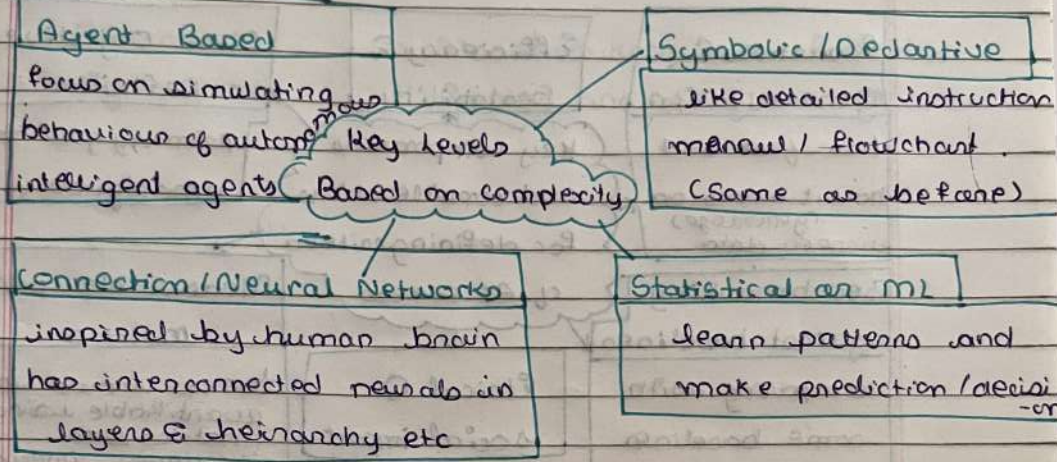 Agent Based
focus on simulating
behaviour of autonomous
intelligent agents
Key Levels
Based on complexity
Symbolic / Dedantive
like detailed instruction
manaul / flowchart.
(Same as before)
Connection / Neural Networks
inspired by human brain
has interconnected neurals in
layers & heirarchy etc
Statistical or ML
learn patterns and
make prediction / decisi
-on